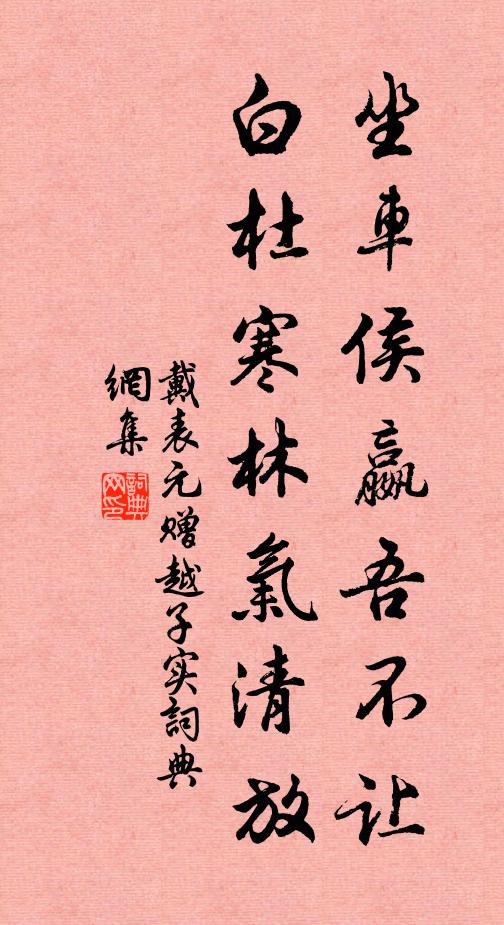 坐車侯嬴吾不让
白杜寒林氣清放
戴表元赠越子实詞典
網集
詞典
网印